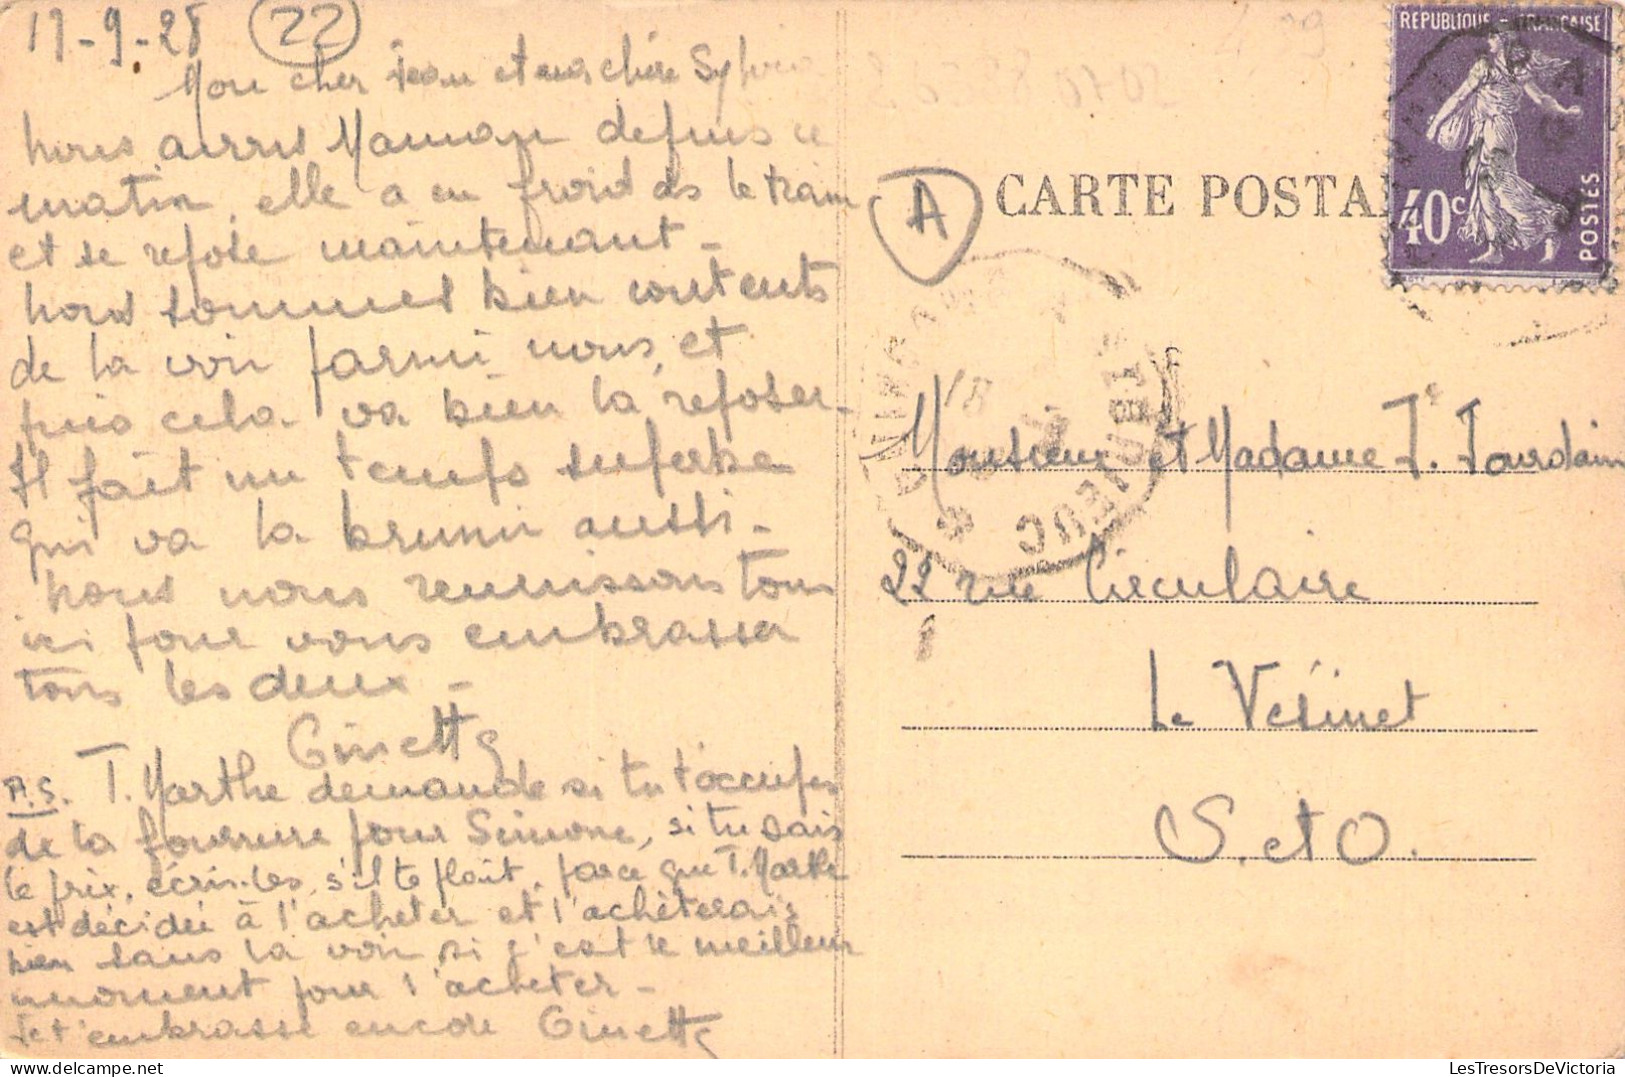 17-9-28 22
Mon cher Jean et ma chère Sylvia
nous avons Maman depuis ce
matin, elle a eu froid ds le train
et se repose maintenant -
nous sommes bien contents
de la voir parmi nous, et
puis cela va bien la reposer -
Il fait un temps superbe
qui va la brunir aussi -
nous nous réunissons tous
ici pour vous embrasser
tous les deux -
Ginette
P.S. T. Marthe demande si tu t'occupes
de la fourrure pour Simone, si tu sais
le prix, écris-les, s'il te plait, parce que T. Marthe
est décidée à l'acheter et l'achèterais
bien sans la voir si c'est le meilleur
moment pour l'acheter -
Je t'embrasse encore Ginette
REPUBLIQUE - FRANÇAISE
40c
POSTES
A
CARTE POSTA
18
Monsieur et Madame J. Jourdain
22 rue Circulaire
Le Vésinet
S. et O.
LesTresorsDeVictoria